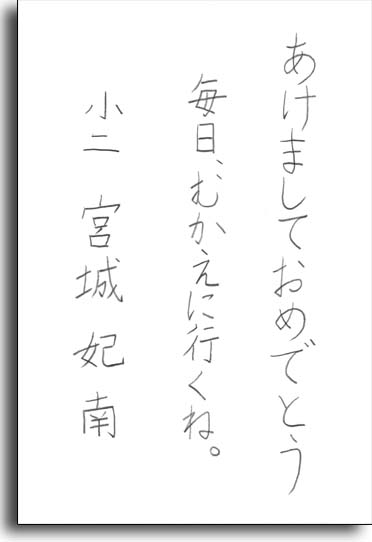 あけましておめでとう
毎日、むかえに行くね。
小二 宮城 妃南